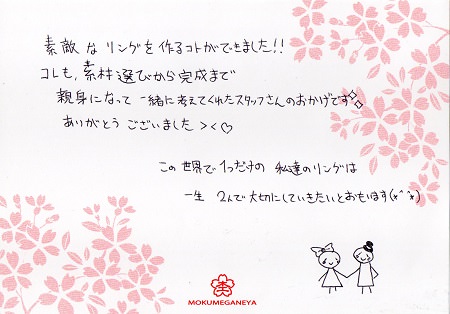 素敵なリングを作るコトができました!!
コレも、素材選びから完成まで
親身になって一緒に考えてくれたスタッフさんのおかげです
ありがとうございました ><♡
この世界で1つだけの 私達のリングは
一生 2人で大切にしていきたいとおもいます(*^^*)
MOKUMEGANEYA